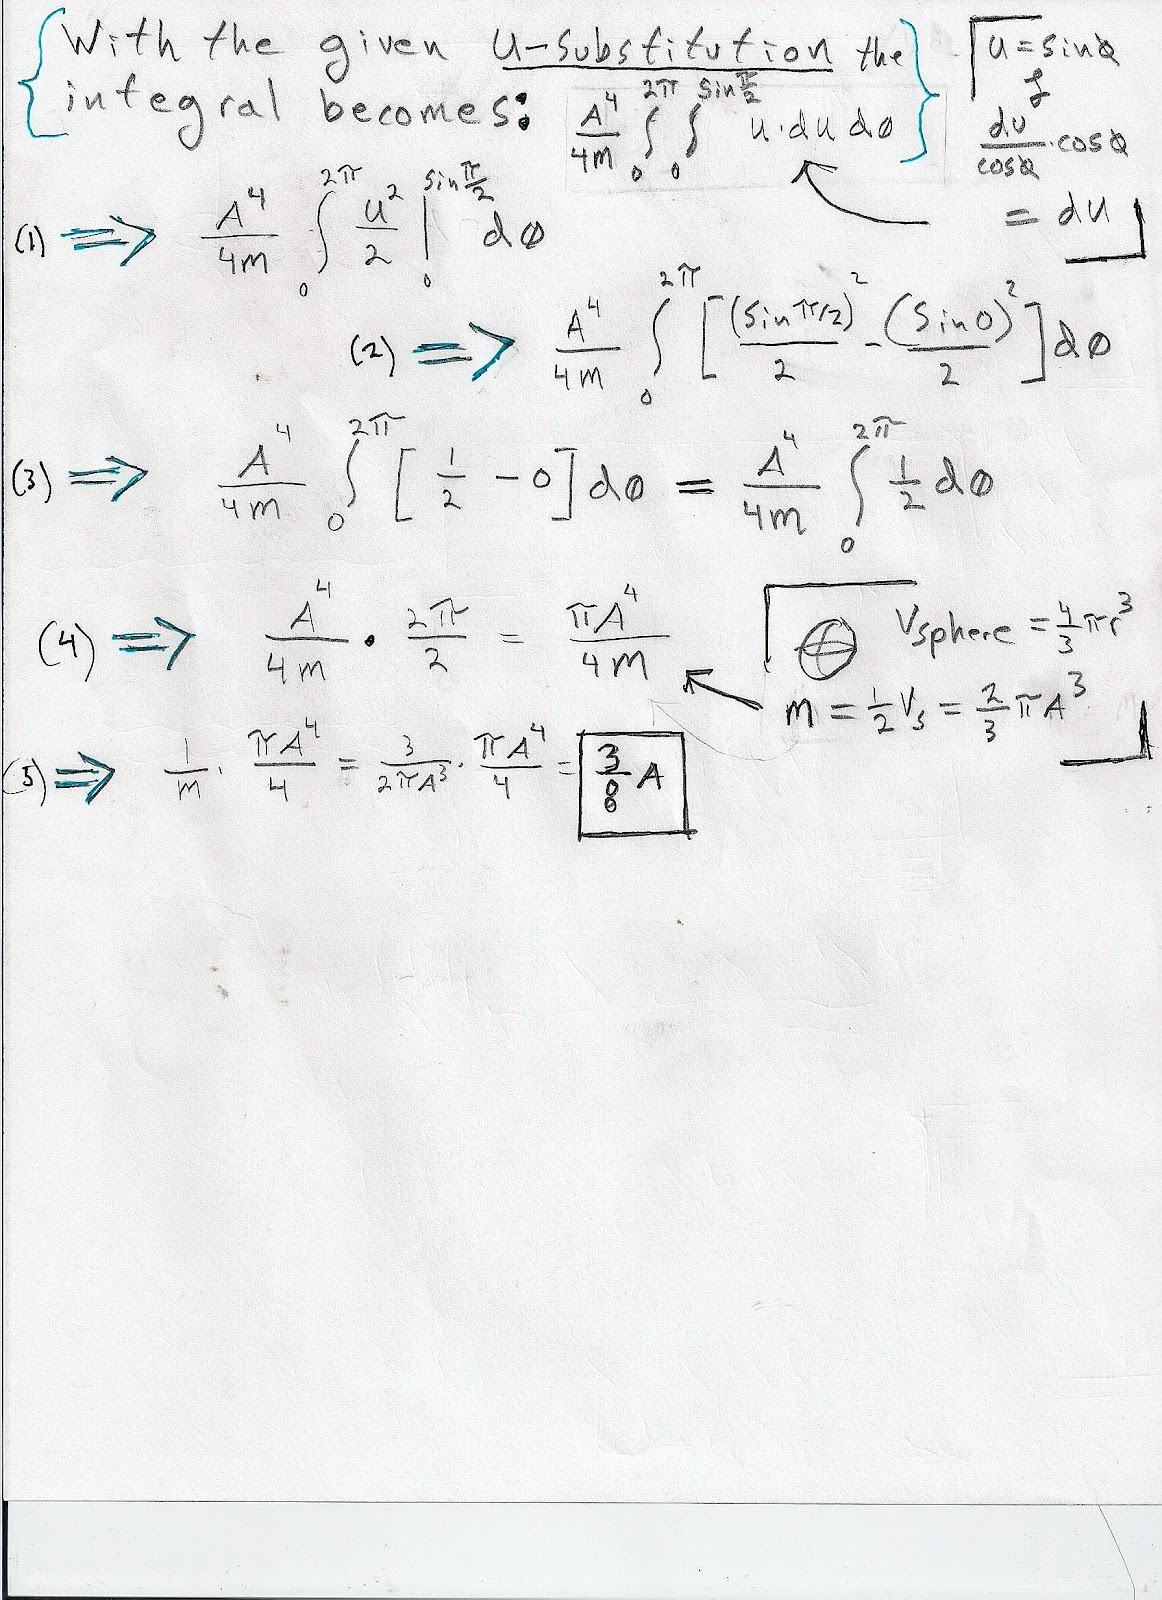 With the given u-substitution the
integral becomes: A⁴/4m ∫₀^2π ∫₀^sin π/2 u·du dø
u = sinθ
&
du/cosθ · cosθ
= du
(1) ⇒ A⁴/4m ∫₀^2π u²/2 |₀^sin π/2 dø
(2) ⇒ A⁴/4m ∫₀^2π [(sin π/2)²/2 - (sin 0)²/2] dø
(3) ⇒ A⁴/4m ∫₀^2π [1/2 - 0] dø = A⁴/4m ∫₀^2π 1/2 dø
(4) ⇒ A⁴/4m · 2π/2 = πA⁴/4m
Vsphere = 4/3 πr³
m = 1/2 Vs = 2/3 πA³
(5) ⇒ 1/m · πA⁴/4 = 3/2πA³ · πA⁴/4 = 3/8 A